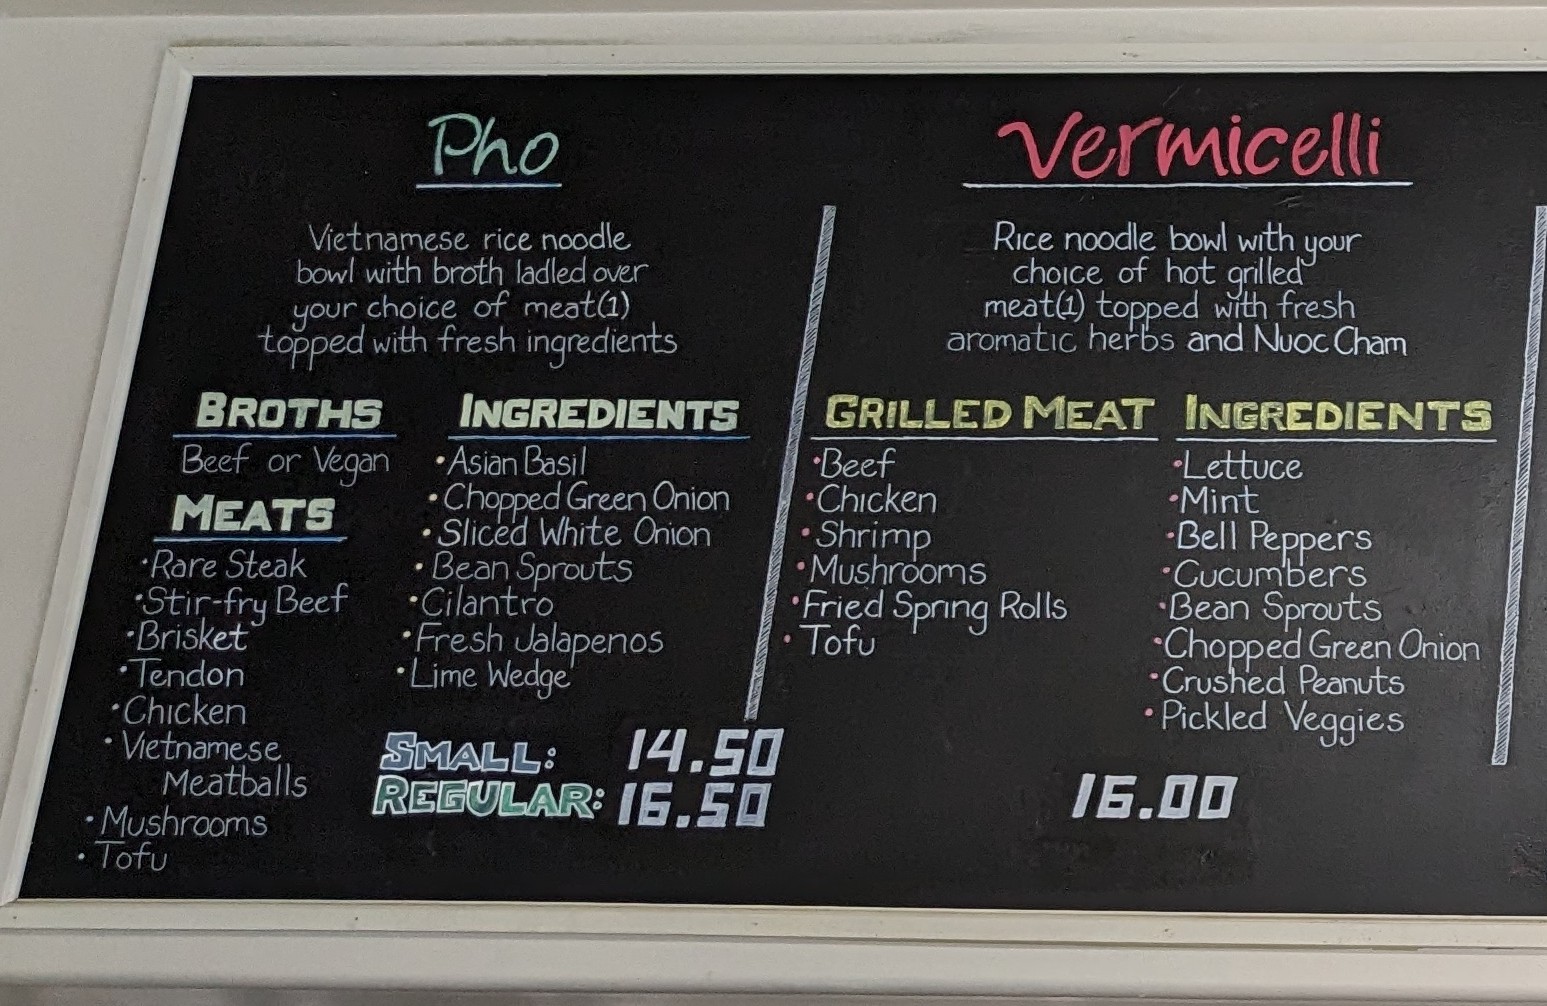 Pho
Vietnamese rice noodle
bowl with broth ladled over
your choice of meat(1)
topped with fresh ingredients
BROTHS
Beef or Vegan
MEATS
•Rare Steak
•Stir-fry Beef
•Brisket
•Tendon
•Chicken
•Vietnamese
Meatballs
•Mushrooms
•Tofu
INGREDIENTS
•Asian Basil
•Chopped Green Onion
•Sliced White Onion
•Bean Sprouts
•Cilantro
•Fresh Jalapenos
•Lime Wedge
SMALL: 14.50
REGULAR: 16.50
Vermicelli
Rice noodle bowl with your
choice of hot grilled
meat(1) topped with fresh
aromatic herbs and Nuoc Cham
GRILLED MEAT
•Beef
•Chicken
•Shrimp
•Mushrooms
•Fried Spring Rolls
•Tofu
INGREDIENTS
•Lettuce
•Mint
•Bell Peppers
•Cucumbers
•Bean Sprouts
•Chopped Green Onion
•Crushed Peanuts
•Pickled Veggies
16.00